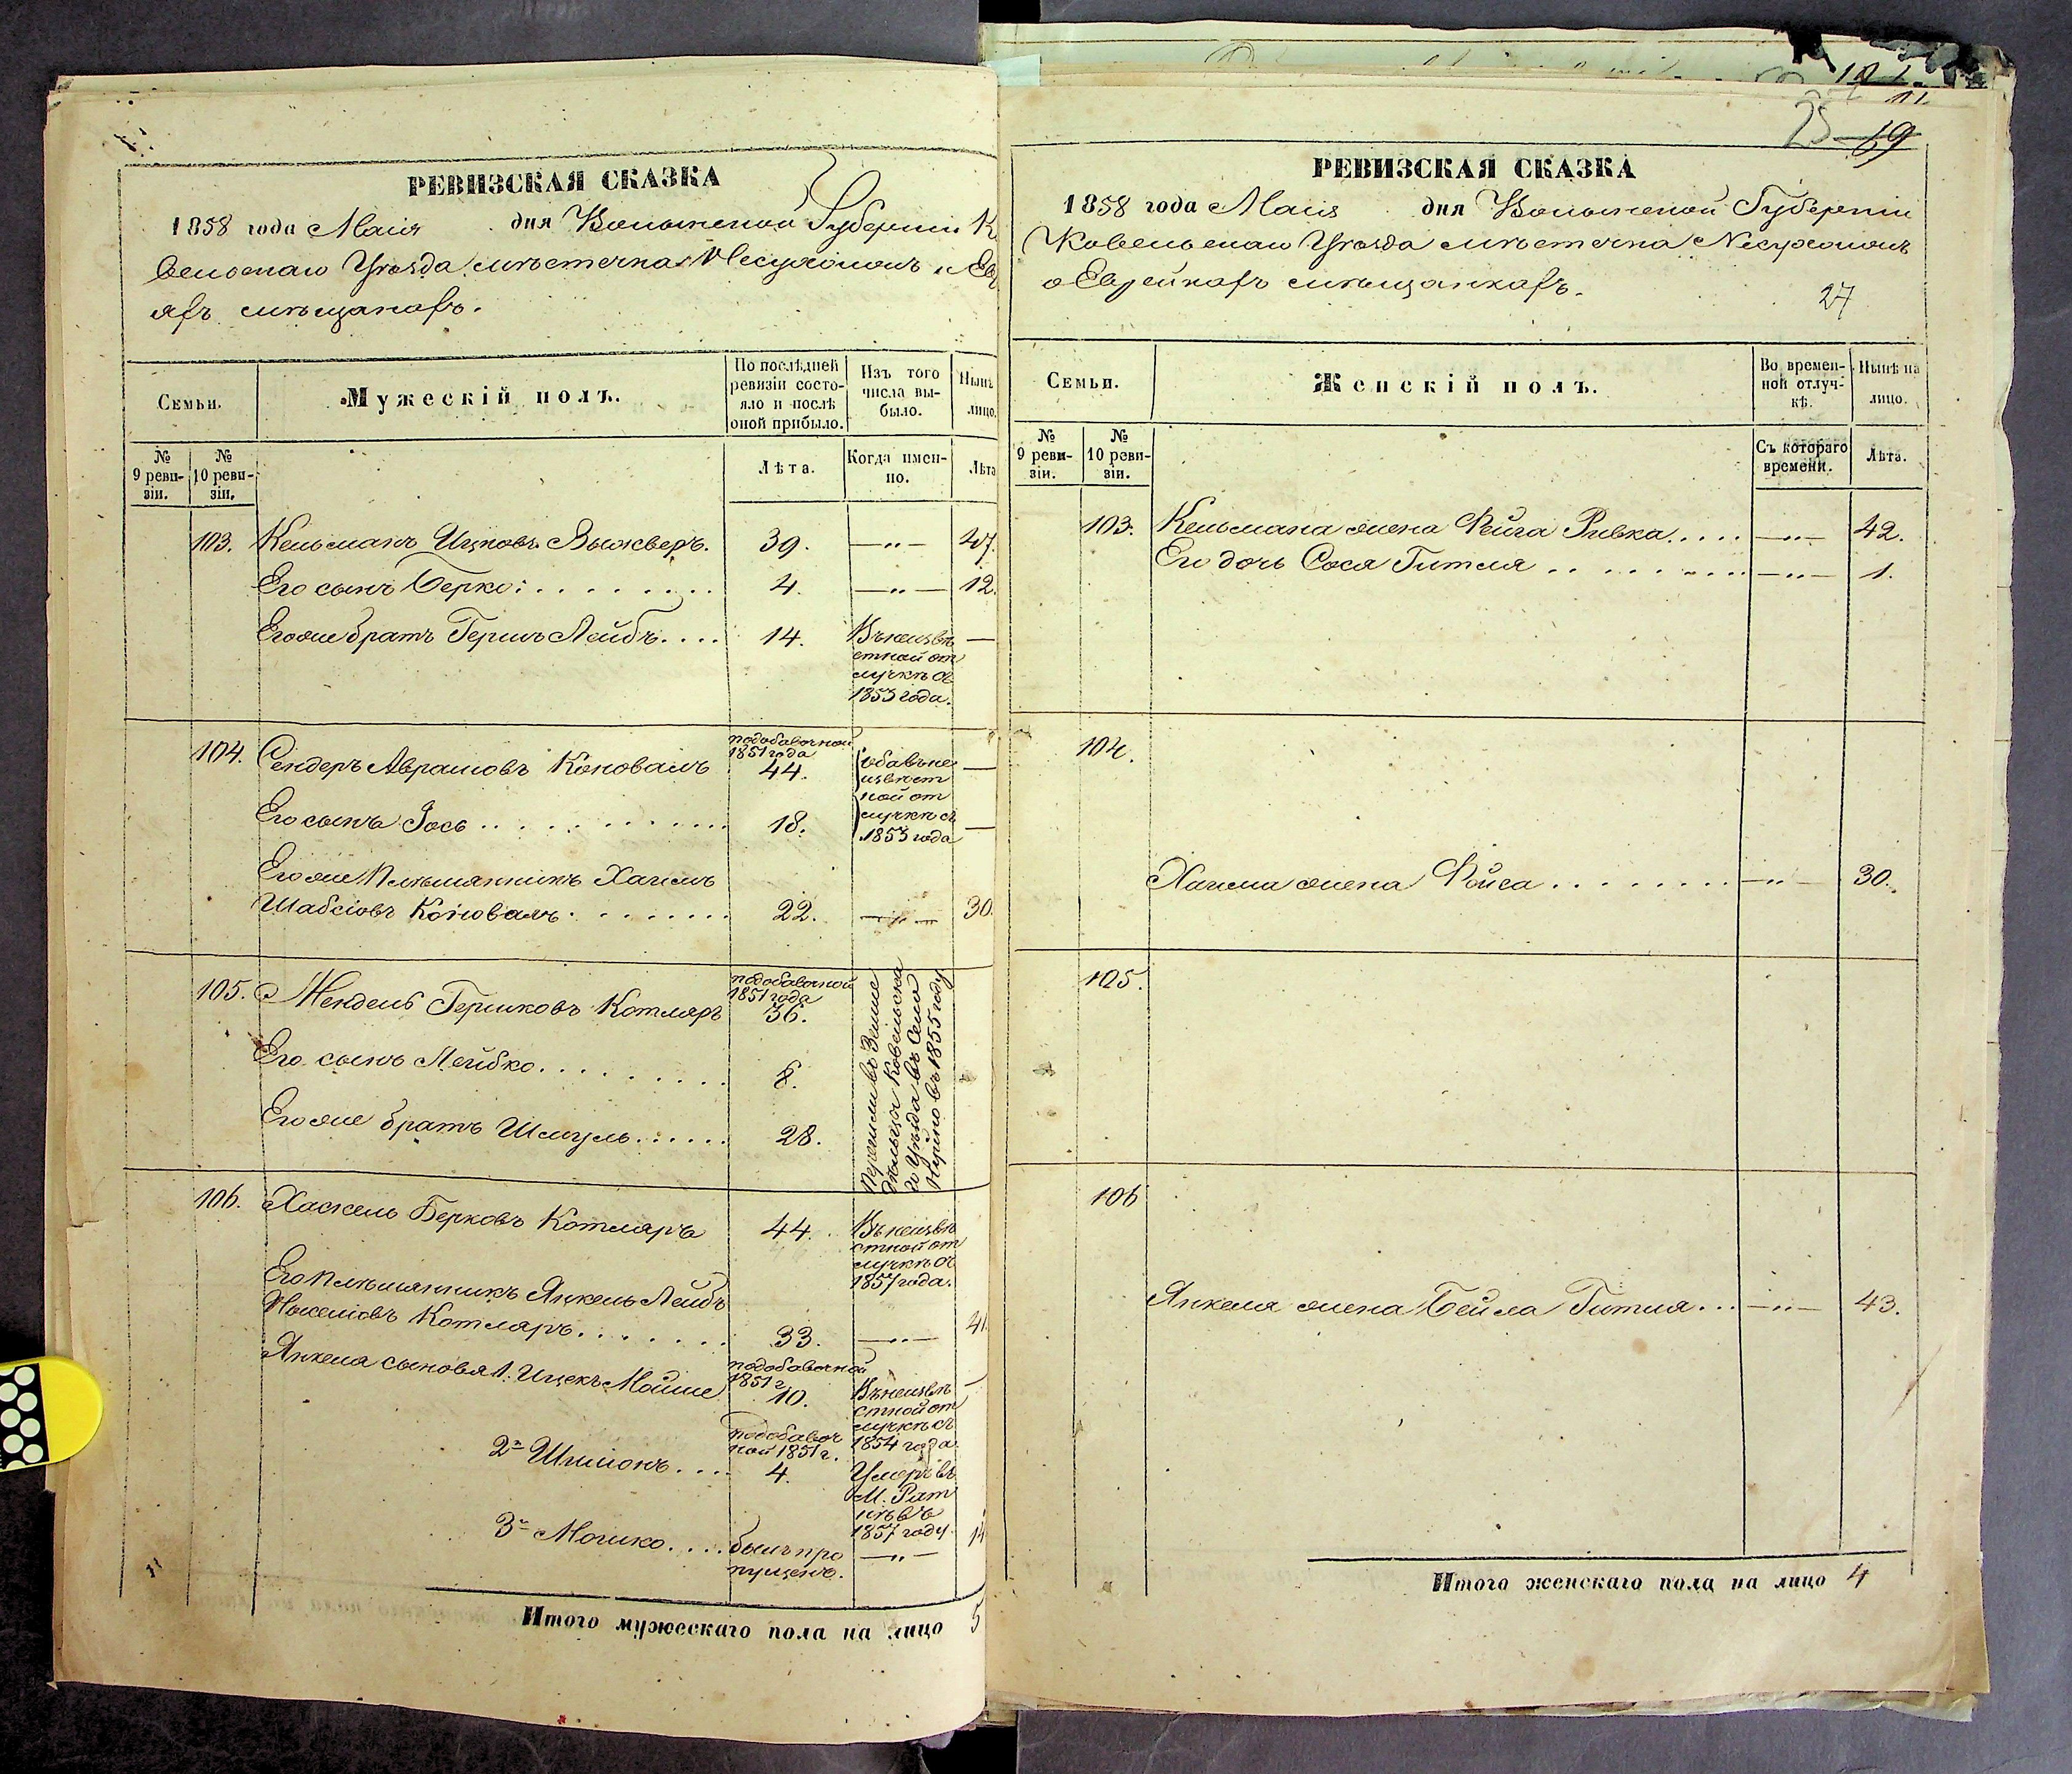 РЕВИЗСКАЯ СКАЗКА
1858 года Маія дня Волынской Губерніи К
вельскаго Уѣзда мѣстечка Несухоижъ о Евр
яхъ мѣщанахъ.
Семьи.
Мужескій полъ.
По послѣдней ревизіи состояло и послѣ оной прибыло.
Изъ того числа выбыло.
Нынѣ лицо.
№ 9 ревизіи.
№ 10 ревизіи.
Лѣта.
Когда именно.
Лѣта
103. Кельманъ Ицковъ Выжверъ. 39. —"— 47.
Его сынъ Берко: 4. —"— 12.
Его же братъ Гершъ Лейбъ.... 14. Въ неизвѣ —
стной от
лучкѣ съ
1853 года.
подобавочной
1851 года
104. Сендеръ Абрамовъ Коновалъ 44. оба въ не —
извѣст
ной от
Его сынъ Іось 18. лучкѣ съ —
1853 года
Его же Племянникъ Хаимъ
Шабсіовъ Коновалъ 22. —"— 30.
подобавочной
1851 года
105. Мендель Гершковъ Котляръ 36.
Его сынъ Лейбко 8.
Его же братъ Шмуль...... 28.
Перечислены въ Земле
дѣльцы Ковельска
го Уѣзда въ Село
въ 1855 году
106. Хаскель Берковъ Котляръ 44. Въ неизвѣ
стной от
лучкѣ съ
1857 года.
Его Племянникъ Янкель Лейбъ
Котляръ 33. —"— 41.
подобавочной
1851 г
Янкеля сыновья 1. Ицекъ Мойше 10. Въ неизвѣ —
стной от
лучкѣ съ
1854 года.
подобавоч
ной 1851 г.
2й Шліомъ.... 4. Умеръ въ
М. Рат
нѣ въ
1857 году.
3й Мошко.... былъ про —"— 14
пущенъ.
11
Итого мужескаго пола на лицо 5
25 19
РЕВИЗСКАЯ СКАЗКА
1858 года Маія дня Волынской Губерніи
Ковельскаго Уѣзда мѣстечка Несухоижъ
о Еврейкахъ мѣщанкахъ.
27
Семьи.
Женскій полъ.
Во временной отлучкѣ.
Нынѣ на лицо.
№ 9 ревизіи.
№ 10 ревизіи.
Съ котораго времени.
Лѣта.
103. Кельмана жена Фейга Ривка..... —"— 42.
Его дочь Сося Гитля —"— 1.
104.
Хаима жена Фойса —"— 30.
105.
106
Янкеля жена Бейла Гитля... —"— 43.
Итого женскаго пола на лицо 4